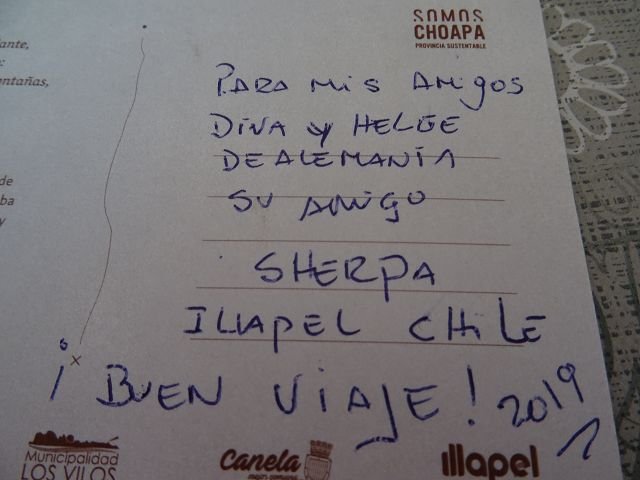 SOMOS
CHOAPA
PROVINCIA SUSTENTABLE
ante,
entañas,
de
ba
y
PARA MIS AMIGOS
DINA Y HELGE
DE ALEMANIA
SU AMIGO
SHERPA
ILLAPEL CHILE
¡BUEN VIAJE! 2019
Municipalidad
LOS VILOS
Canela
illapel